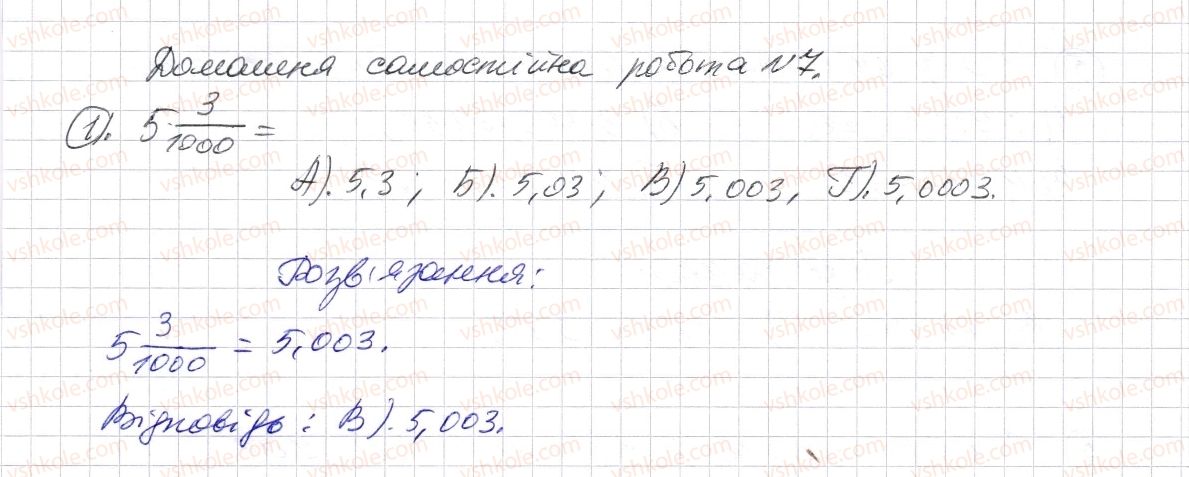 Домашня самостійна робота №7.
1). 5 3/1000 =
А). 5,3; Б). 5,03; В) 5,003, Г). 5,0003.
Розв'язання:
5 3/1000 = 5,003.
Відповідь: В). 5,003.